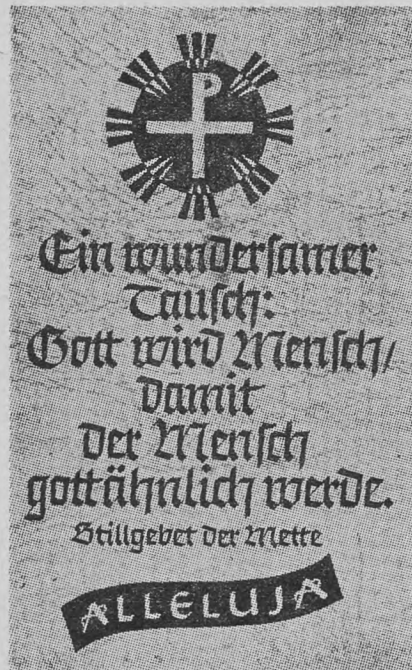 Ein wundersamer
Tausch:
Gott wird Mensch/
damit
der Mensch
gottähnlich werde.
Stillgebet der Mette
ALLELUJA